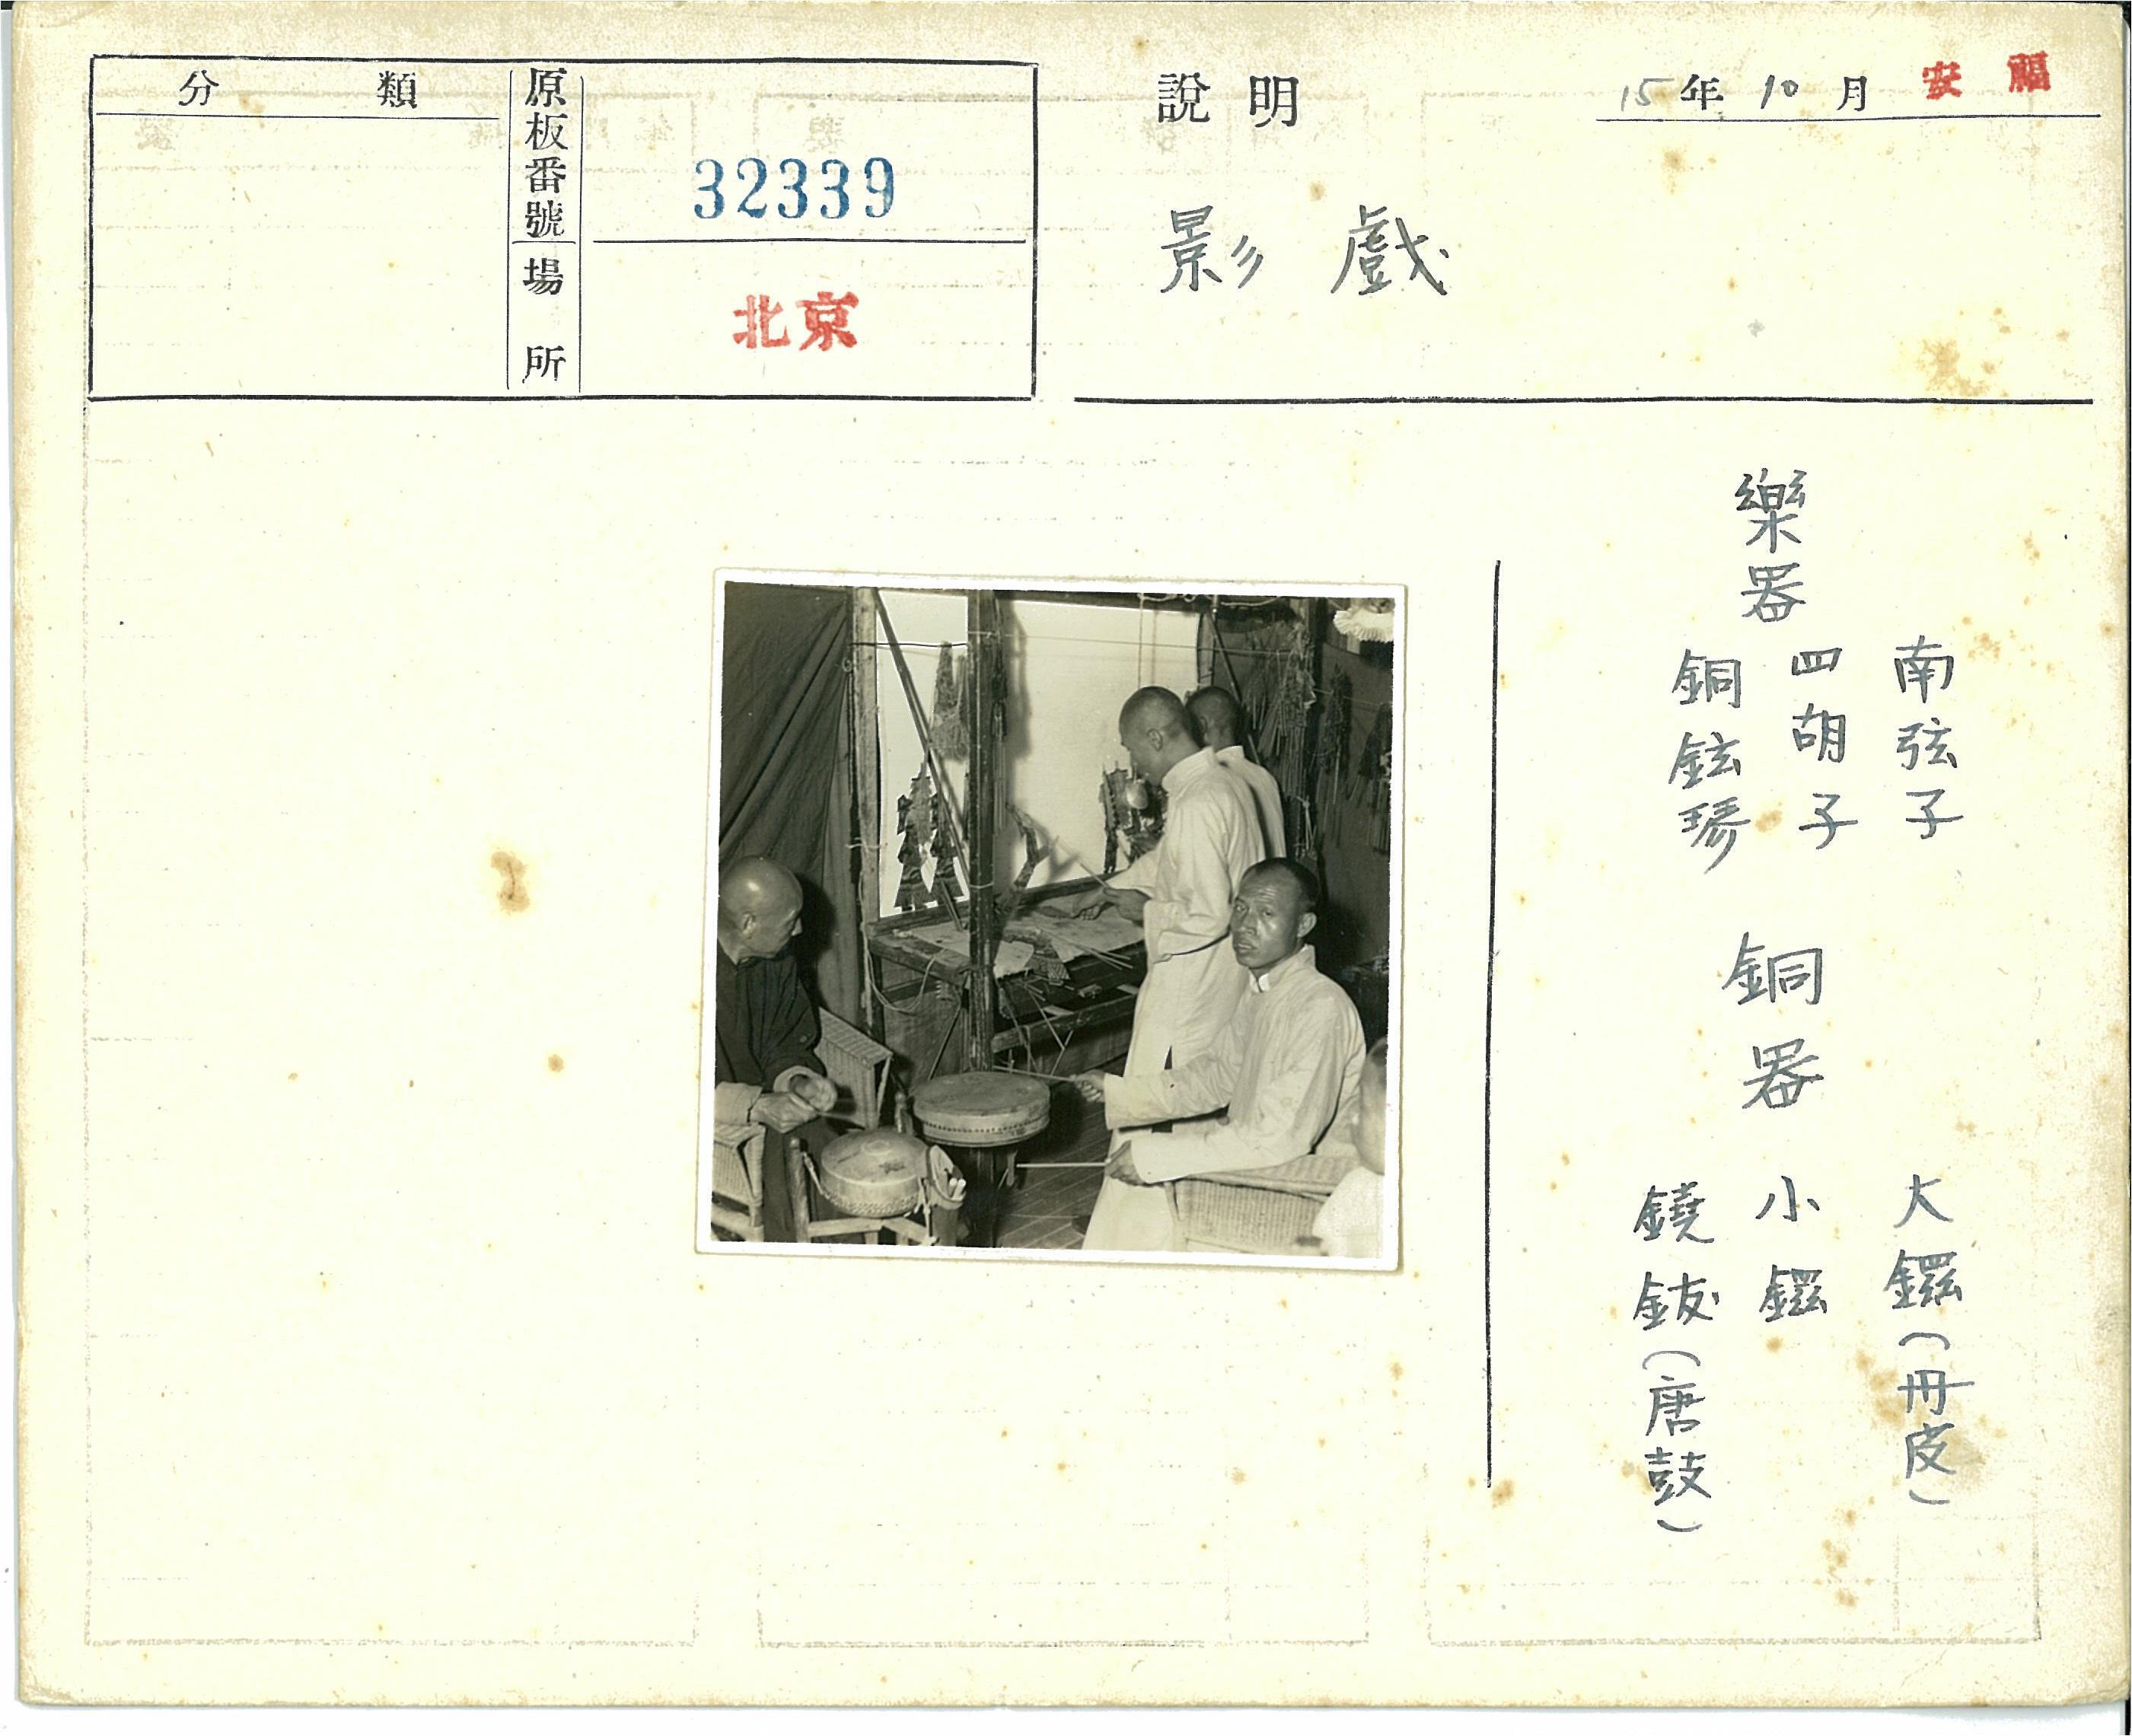 分類
原板番號
32339
場所
北京
説明
影戲
15年10月
安福
樂器
南弦子
四胡子
銅鉉琴
銅器
大鑼(丹皮)
小鑼
鐃鈸(唐鼓)